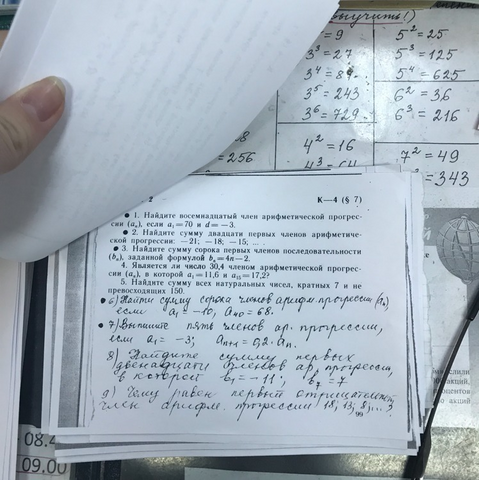 выучить!)
= 9
5² = 25
3³ = 27
5³ = 125
3⁴ = 81
5⁴ = 625
3⁵ = 243
6² = 36
3⁶ = 729
6³ = 216
= 256
4² = 16
4³ = 64
7² = 49
= 343
К—4 (§ 7)
● 1. Найдите восемнадцатый член арифметической прогрес-
сии (aₙ), если a₁=70 и d=−3.
● 2. Найдите сумму двадцати первых членов арифметиче-
ской прогрессии: −21; −18; −15; ... .
● 3. Найдите сумму сорока первых членов последовательности
(bₙ), заданной формулой bₙ=4n−2.
4. Является ли число 30,4 членом арифметической прогрес-
сии (aₙ), в которой a₁=11,6 и a₁₅=17,2?
5. Найдите сумму всех натуральных чисел, кратных 7 и не
превосходящих 150.
● 6) Найти сумму сорока членов арифм прогрессии (aₙ)
если a₁ = −10, a₄₀ = 68.
● 7) Выпишите пять членов ар. прогрессии,
если a₁ = −3; aₙ₊₁ = 0,2·aₙ.
8) Найдите сумму первых
двенадцати членов ар. прогрессии,
в которой b₁ = −11; b₇ = 7
9) Чему равен первый отрицательн
член арифм. прогрессии 18; 13; 8; ... ?
99
08.4
09.00